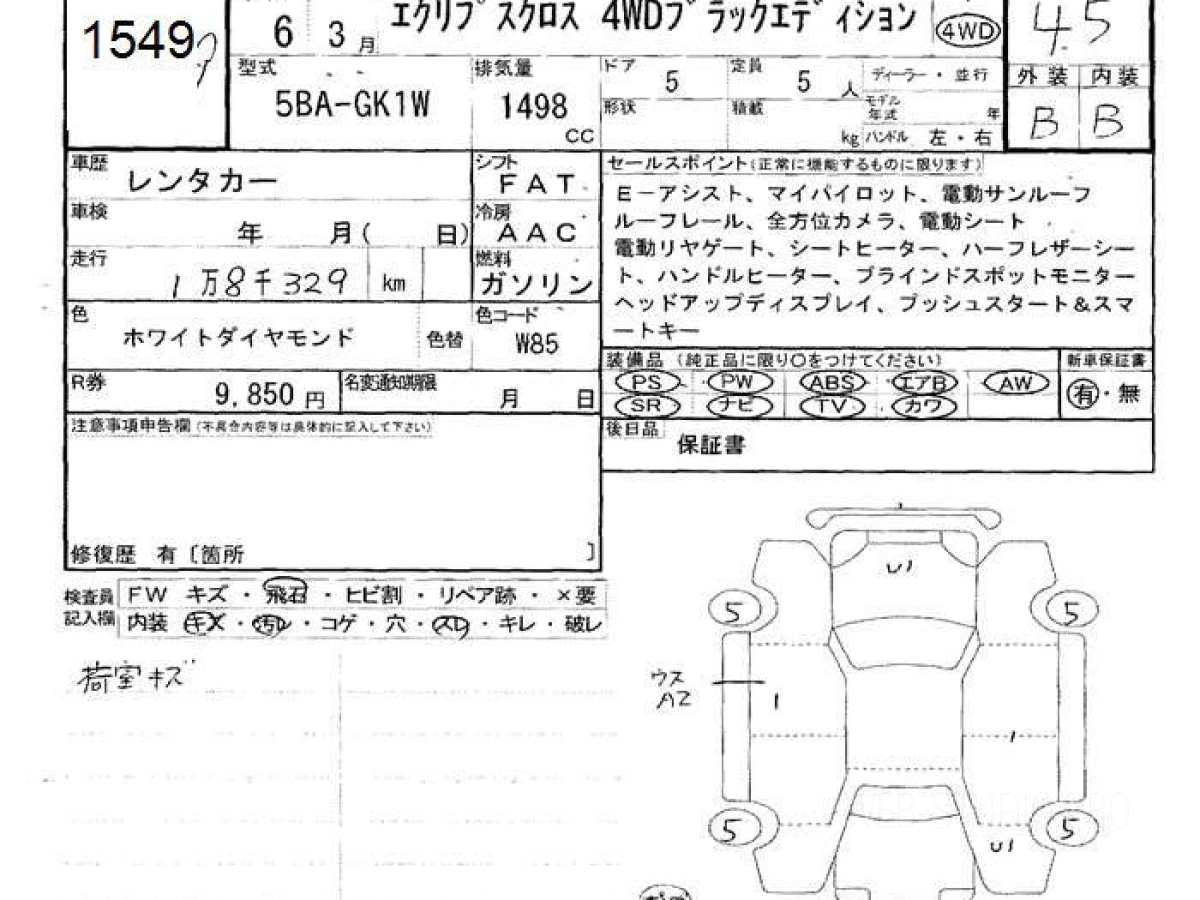 15497
6 3月
エクリプスクロス 4WDブラックエディション
4WD
4.5
型式
5BA-GK1W
排気量
1498
CC
ドア
5
定員
5 人
形状
積載
kg
ディーラー・並行
モデル年式
年
ハンドル 左・右
外装 内装
B B
車歴
レンタカー
シフト
FAT
車検
年 月( 日)
冷房
AAC
走行
1万8千329 km
燃料
ガソリン
色
ホワイトダイヤモンド
色替
色コード
W85
R券
9,850 円
名変通知期限
月 日
セールスポイント(正常に機能するものに限ります)
E-アシスト、マイパイロット、電動サンルーフ
ルーフレール、全方位カメラ、電動シート
電動リヤゲート、シートヒーター、ハーフレザーシー
ト、ハンドルヒーター、ブラインドスポットモニター
ヘッドアップディスプレイ、プッシュスタート&スマ
ートキー
装備品 (純正品に限り○をつけてください)
新車保証書
PS PW ABS エアB AW
SR ナビ TV カワ
有・無
後日品
保証書
注意事項申告欄(不具合内容等は具体的に記入して下さい)
修復歴 有〔箇所 〕
検査員
記入欄
FW キズ・飛石・ヒビ割・リペア跡・×要
内装 キズ・汚レ・コゲ・穴・スレ・キレ・破レ
荷室キズ
U1
5 5
ウス
A2
1
1
5 5
U1